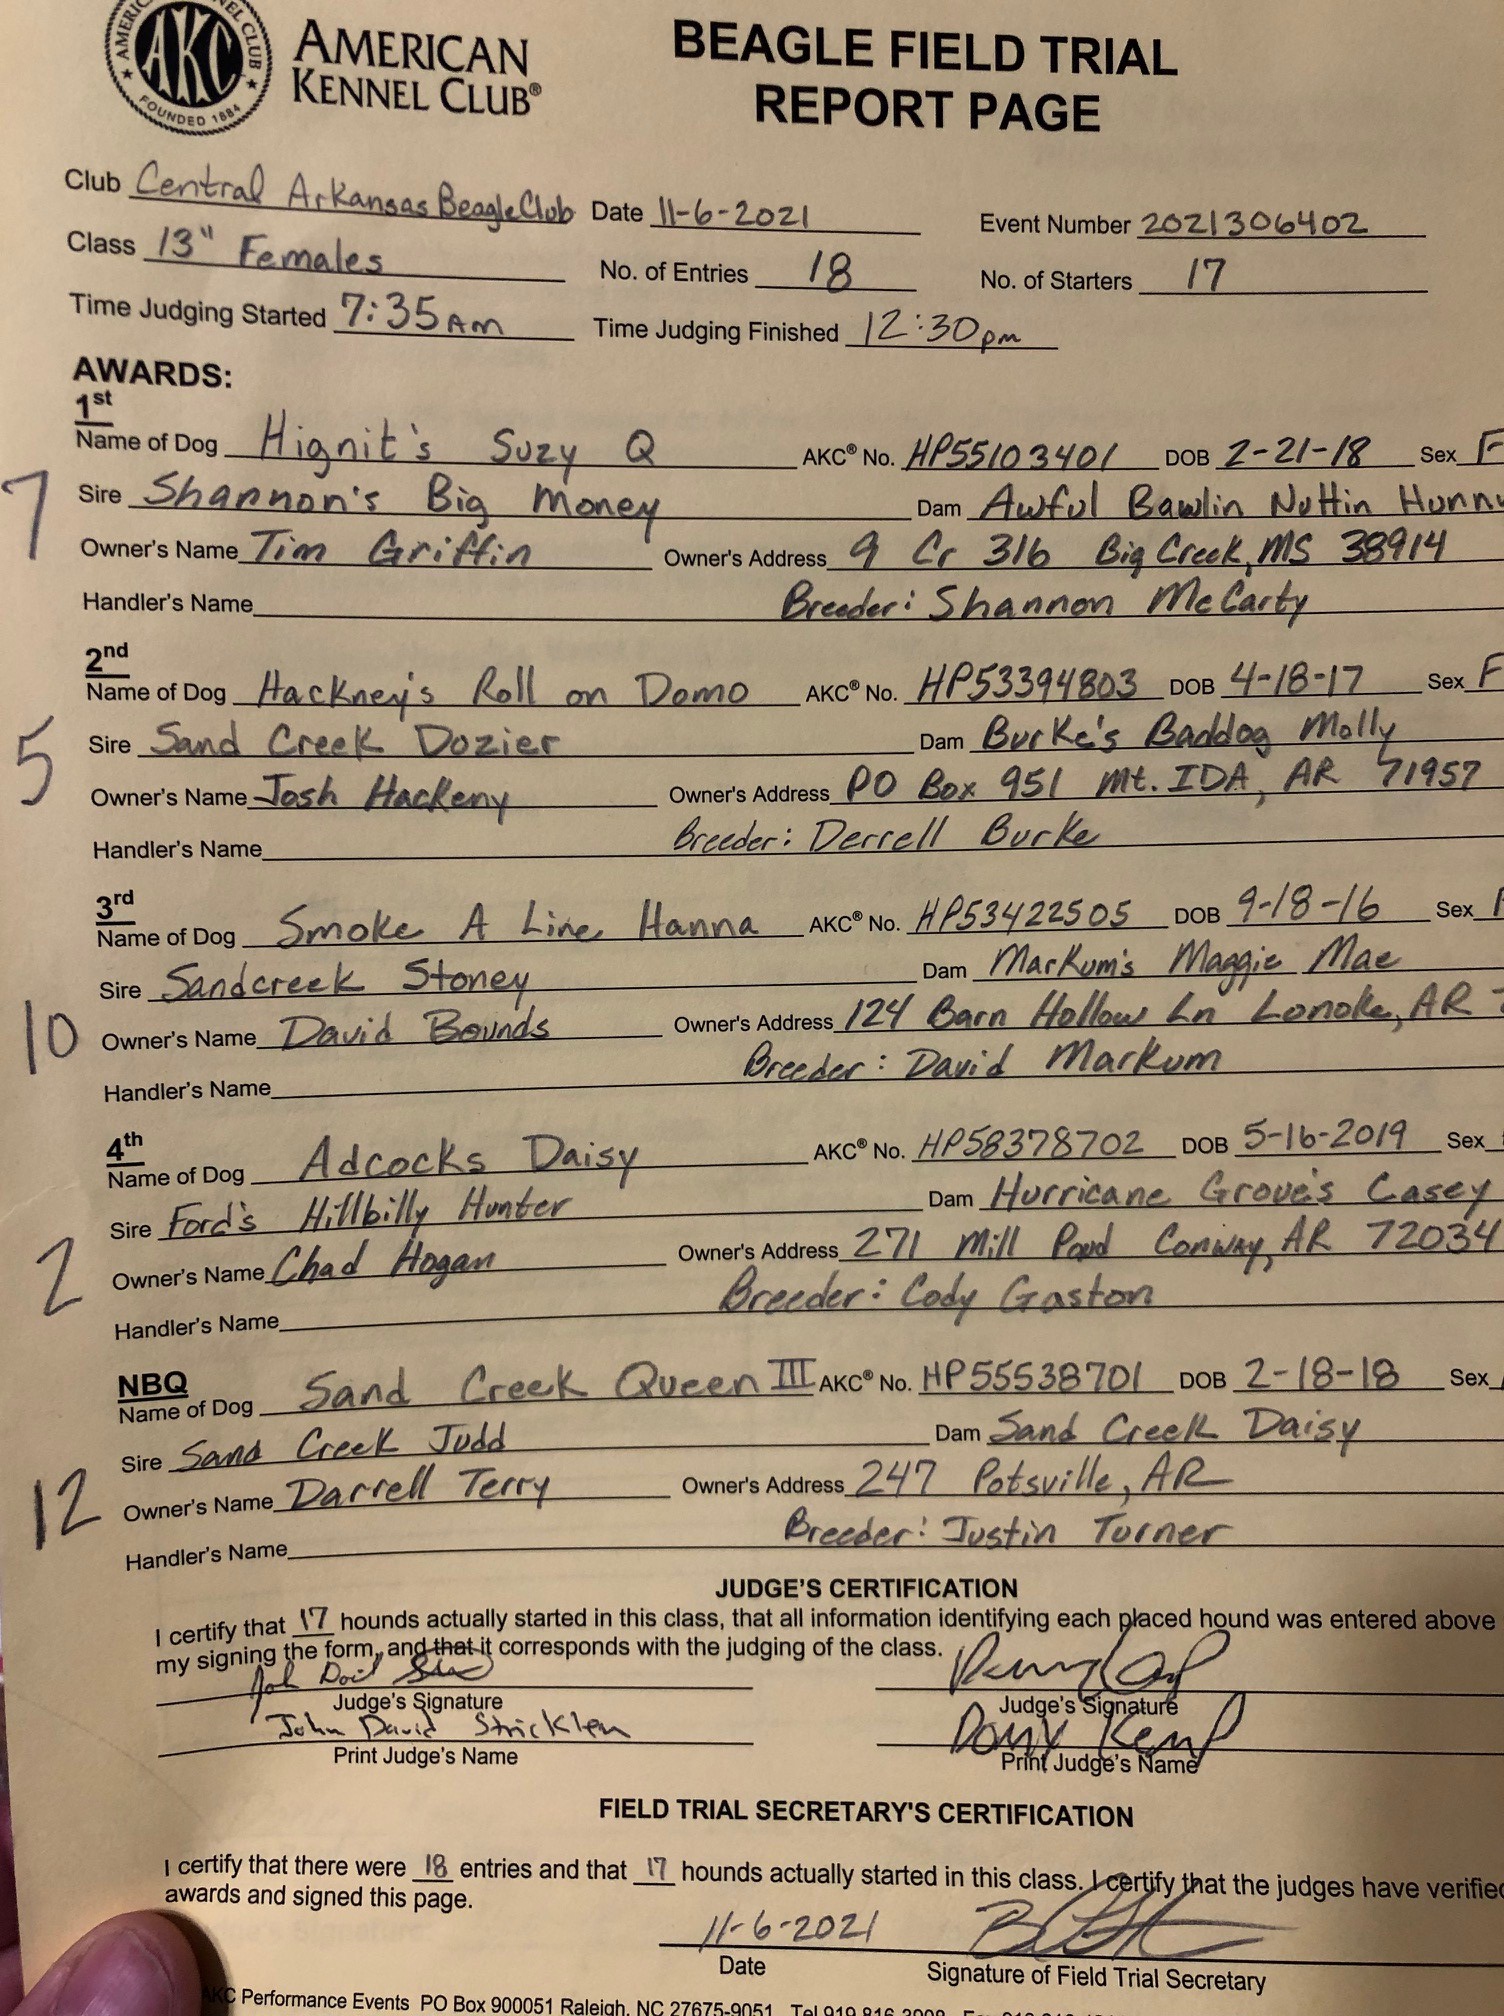 AMERICAN KENNEL CLUB
AKC
FOUNDED 1884
AMERICAN
KENNEL CLUB®
BEAGLE FIELD TRIAL
REPORT PAGE
Club Central Arkansas Beagle Club Date 11-6-2021 Event Number 2021306402
Class 13" Females No. of Entries 18 No. of Starters 17
Time Judging Started 7:35 AM Time Judging Finished 12:30pm
AWARDS:
1st
Name of Dog Hignit's Suzy Q AKC® No. HP55103401 DOB 2-21-18 Sex F
7 Sire Shannon's Big Money Dam Awful Bawlin Nuttin Hunny
Owner's Name Tim Griffin Owner's Address 9 Cr 316 Big Creek, MS 38914
Handler's Name Breeder: Shannon McCarty
2nd
Name of Dog Hackney's Roll on Domo AKC® No. HP53394803 DOB 4-18-17 Sex F
5 Sire Sand Creek Dozier Dam Burke's Baddog Molly
Owner's Name Josh Hackeny Owner's Address PO Box 951 Mt. IDA, AR 71957
Handler's Name Breeder: Derrell Burke
3rd
Name of Dog Smoke A Line Hanna AKC® No. HP53422505 DOB 9-18-16 Sex
Sire Sandcreek Stoney Dam Markum's Maggie Mae
10 Owner's Name David Bounds Owner's Address 124 Barn Hollow Ln Lonoke, AR
Handler's Name Breeder: David Markum
4th
Name of Dog Adcocks Daisy AKC® No. HP58378702 DOB 5-16-2019 Sex
Sire Ford's Hillbilly Hunter Dam Hurricane Grove's Casey
2 Owner's Name Chad Hogan Owner's Address 271 Mill Pond Conway, AR 72034
Handler's Name Breeder: Cody Gaston
NBQ
Name of Dog Sand Creek Queen III AKC® No. HP55538701 DOB 2-18-18 Sex
Sire Sand Creek Judd Dam Sand Creek Daisy
12 Owner's Name Darrell Terry Owner's Address 247 Potsville, AR
Handler's Name Breeder: Justin Turner
JUDGE'S CERTIFICATION
I certify that 17 hounds actually started in this class, that all information identifying each placed hound was entered above
my signing the form, and that it corresponds with the judging of the class.
Judge's Signature Judge's Signature
John David Stricklen Kemp
Print Judge's Name Print Judge's Name
FIELD TRIAL SECRETARY'S CERTIFICATION
I certify that there were 18 entries and that 17 hounds actually started in this class. I certify that the judges have verified
awards and signed this page.
11-6-2021
Date Signature of Field Trial Secretary
AKC Performance Events PO Box 900051 Raleigh, NC 27675-9051 Tel 919